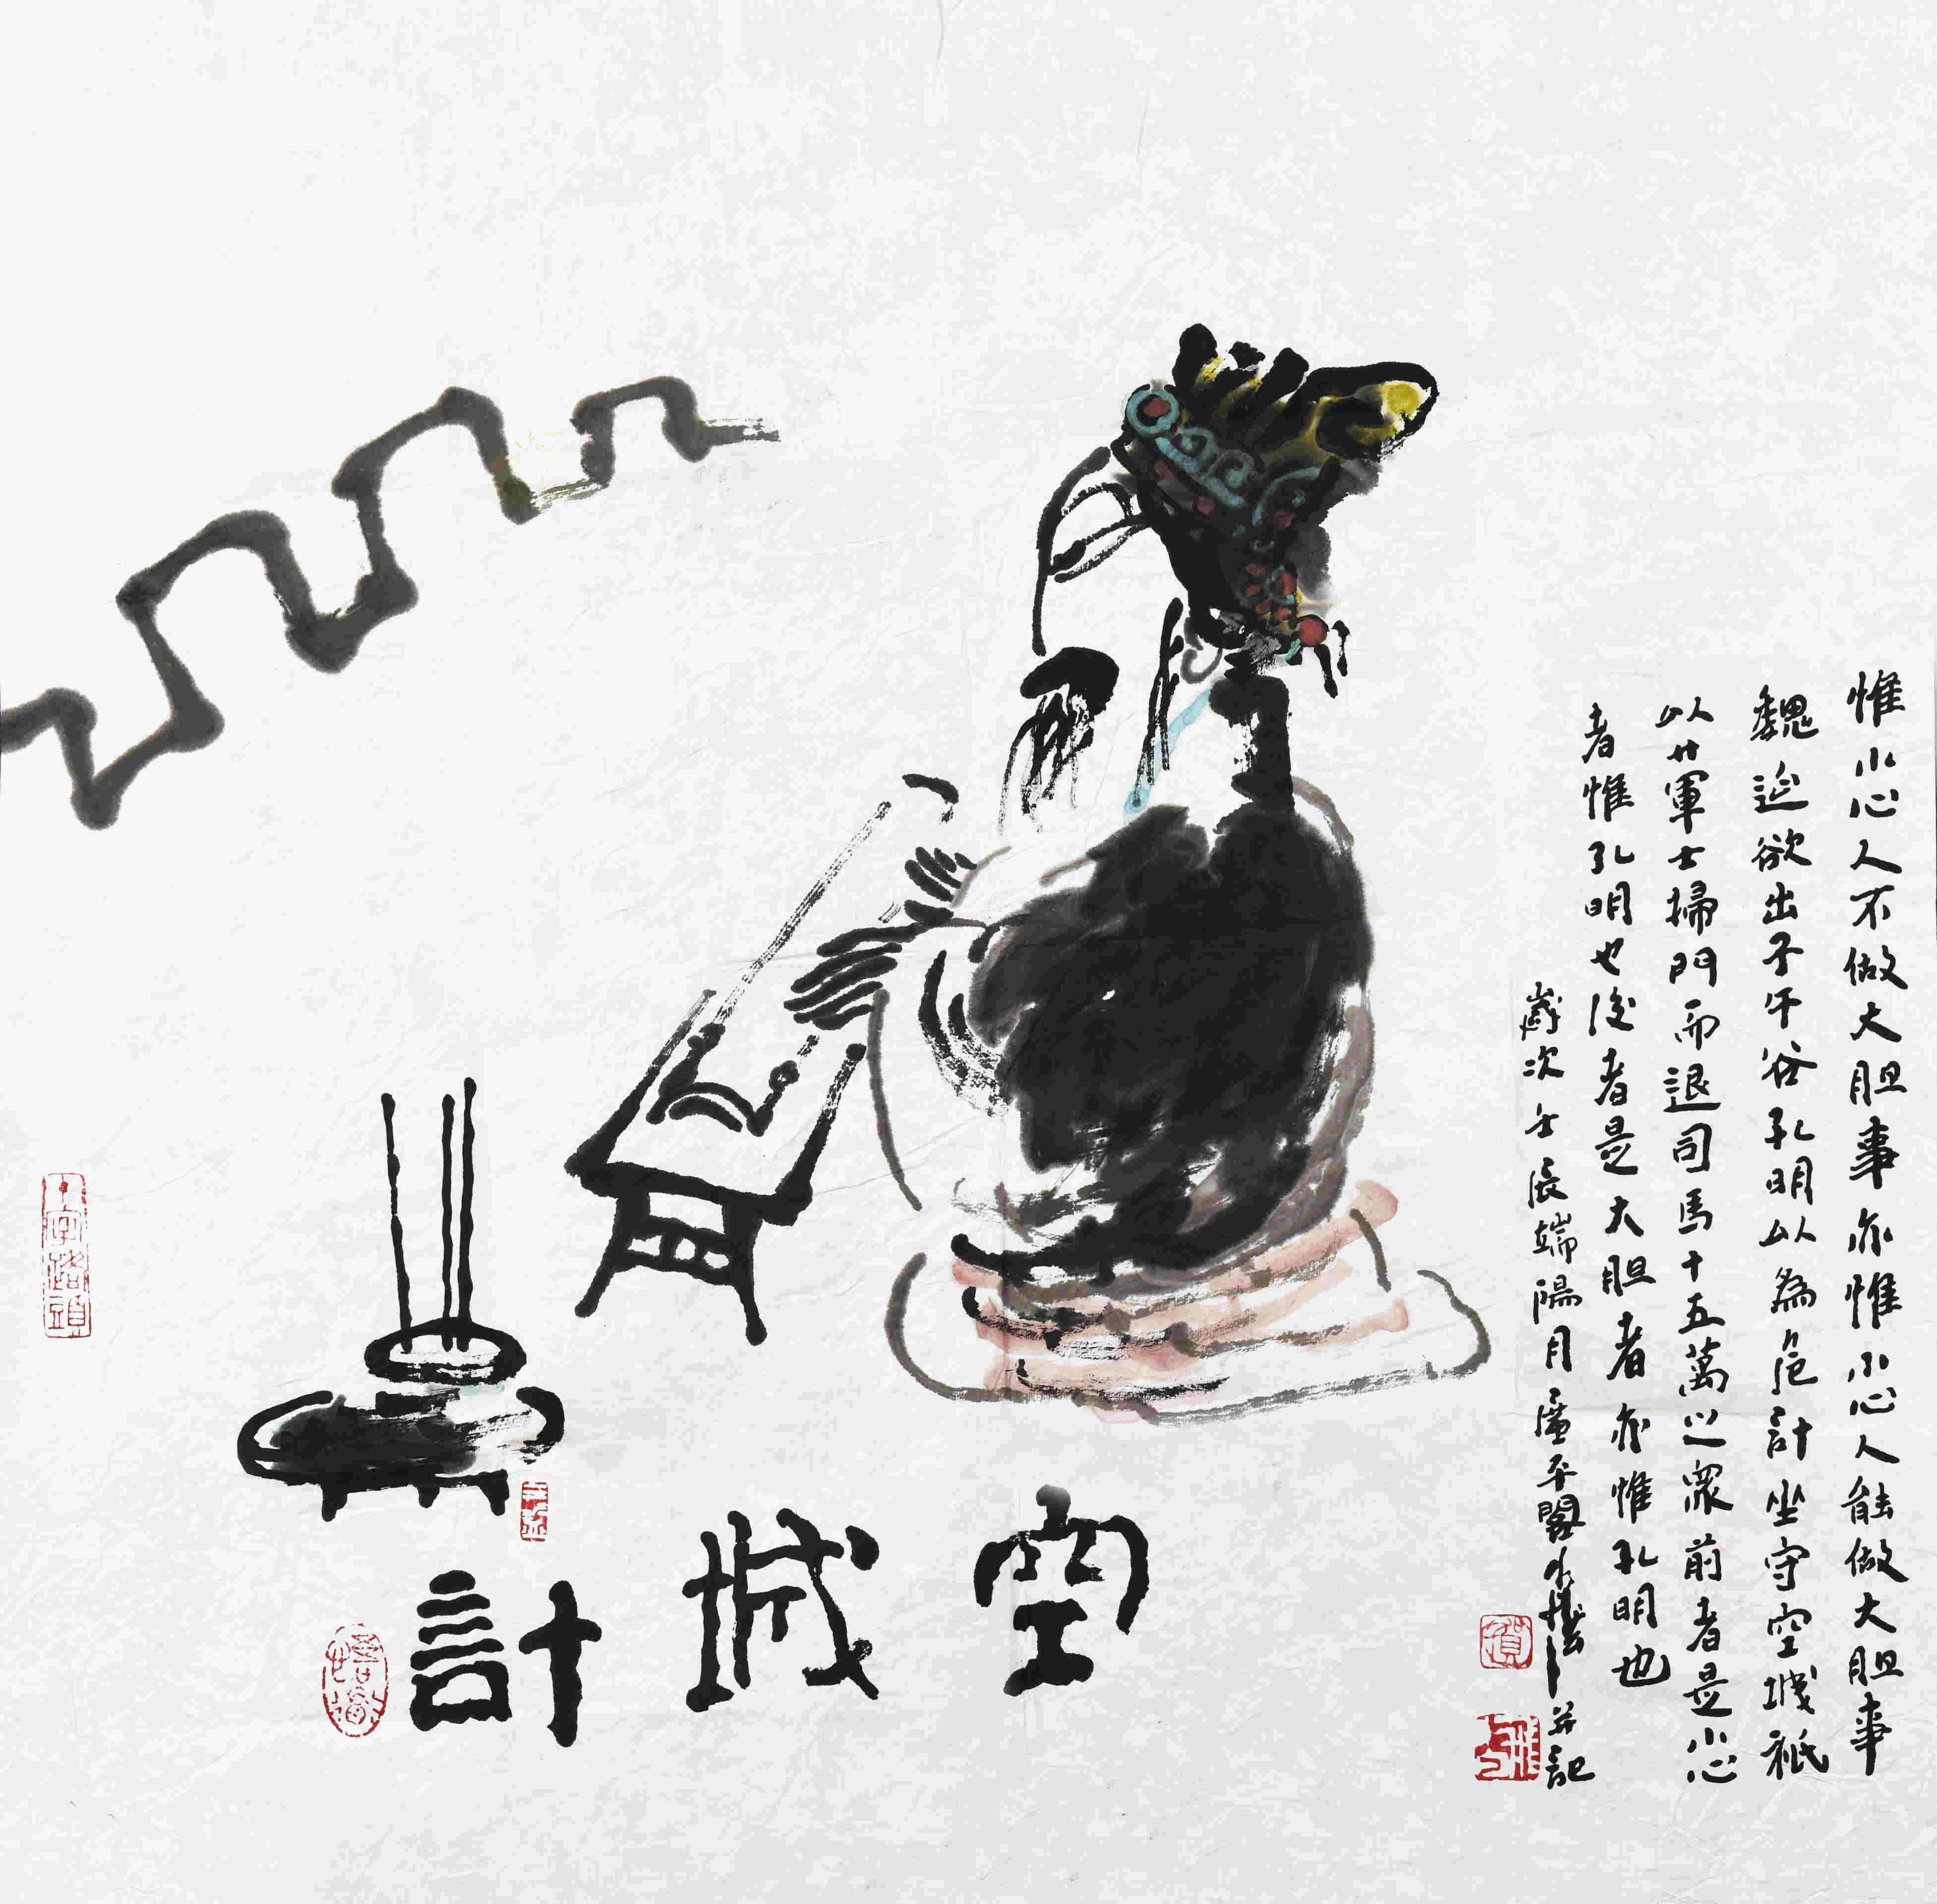 惟小心人不做大胆事亦惟小心人能做大胆事
魏延欲出子午谷孔明以為危計坐守空城祇
以廿軍士掃門而退司馬十五萬之眾前者是小心
者惟孔明也後者是大胆者亦惟孔明也
歲次壬辰端陽月廬平閣
並記
空城計
十字路頭